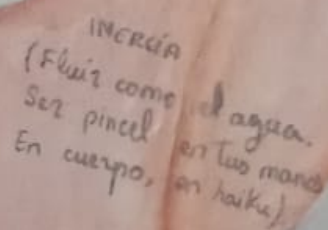 INERCIA
(Fluir como el agua.
Ser pincel en tus manos
En cuerpo, en haiku)